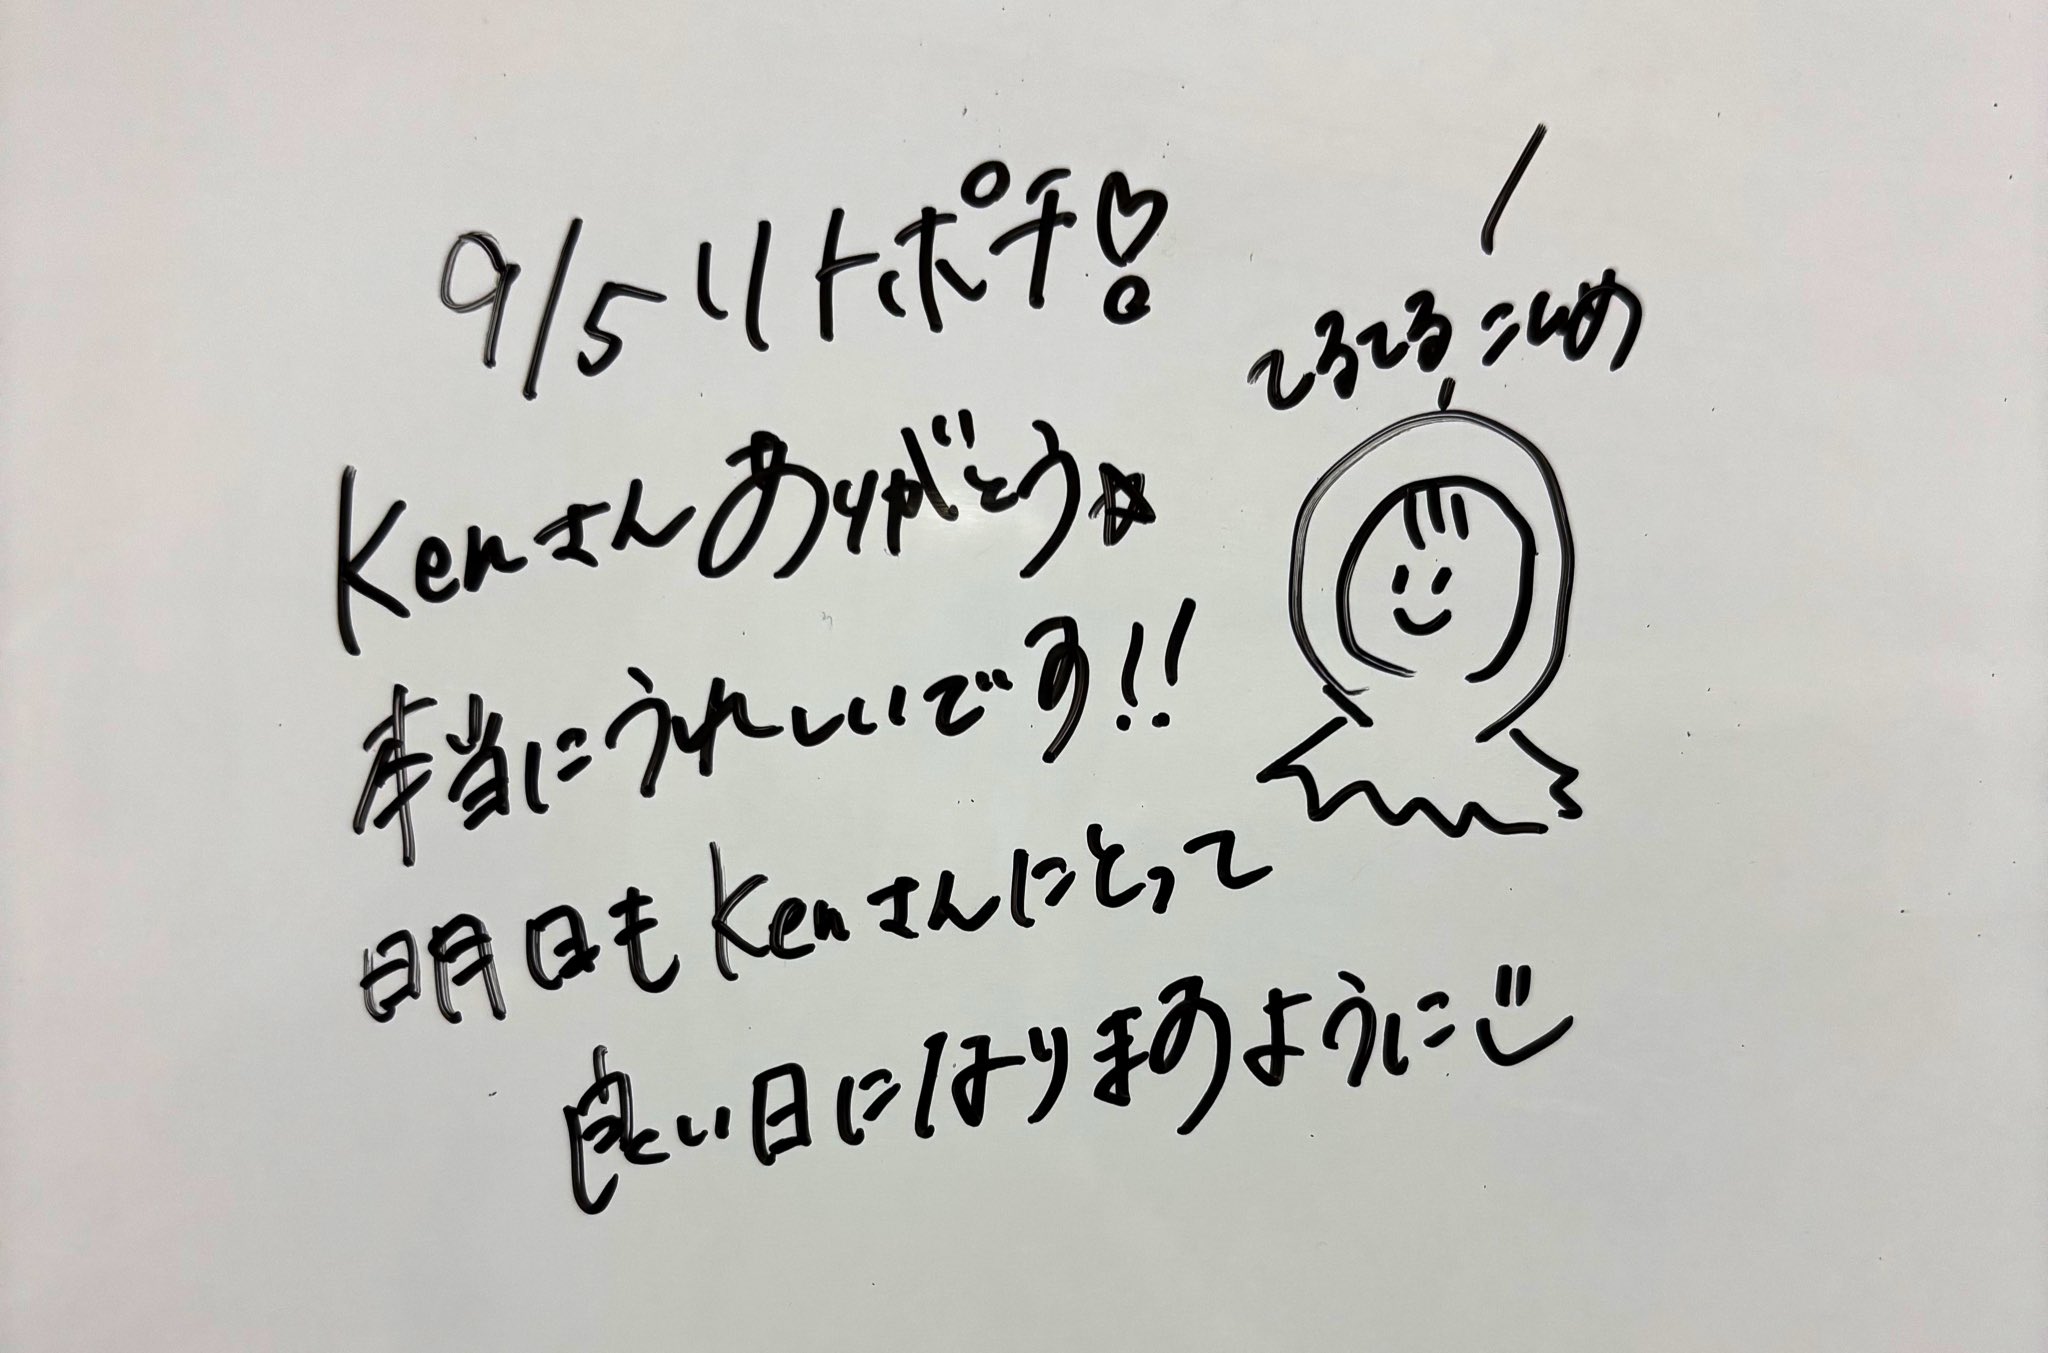 9/5 リトポチ♡
Kenさんありがとう☆
本当にうれしいです!!
明日もKenさんにとって
良い日になりますように
てるてるこしめ